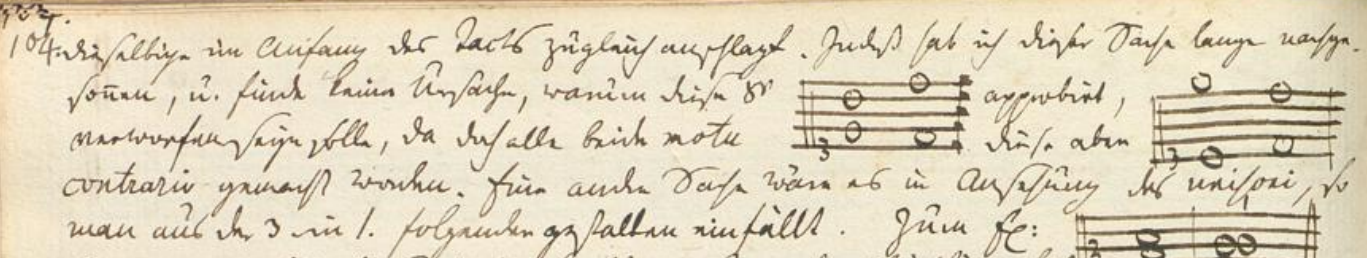 104. dieselbige im Anfang des Tacts zugleich anschlagt. Indeß hab ich dieser Sache lange nachge-
sonnen, u. finde keine Ursache, warum diese 8v approbirt,
verworfen seyn solle, da doch alle beide motu diese aber
contrario gemacht werden. Eine andre Sache wäre es in Ansehung des unisoni, so
man aus der 3 in 1. folgender gestalten einfällt. Zum Ex: